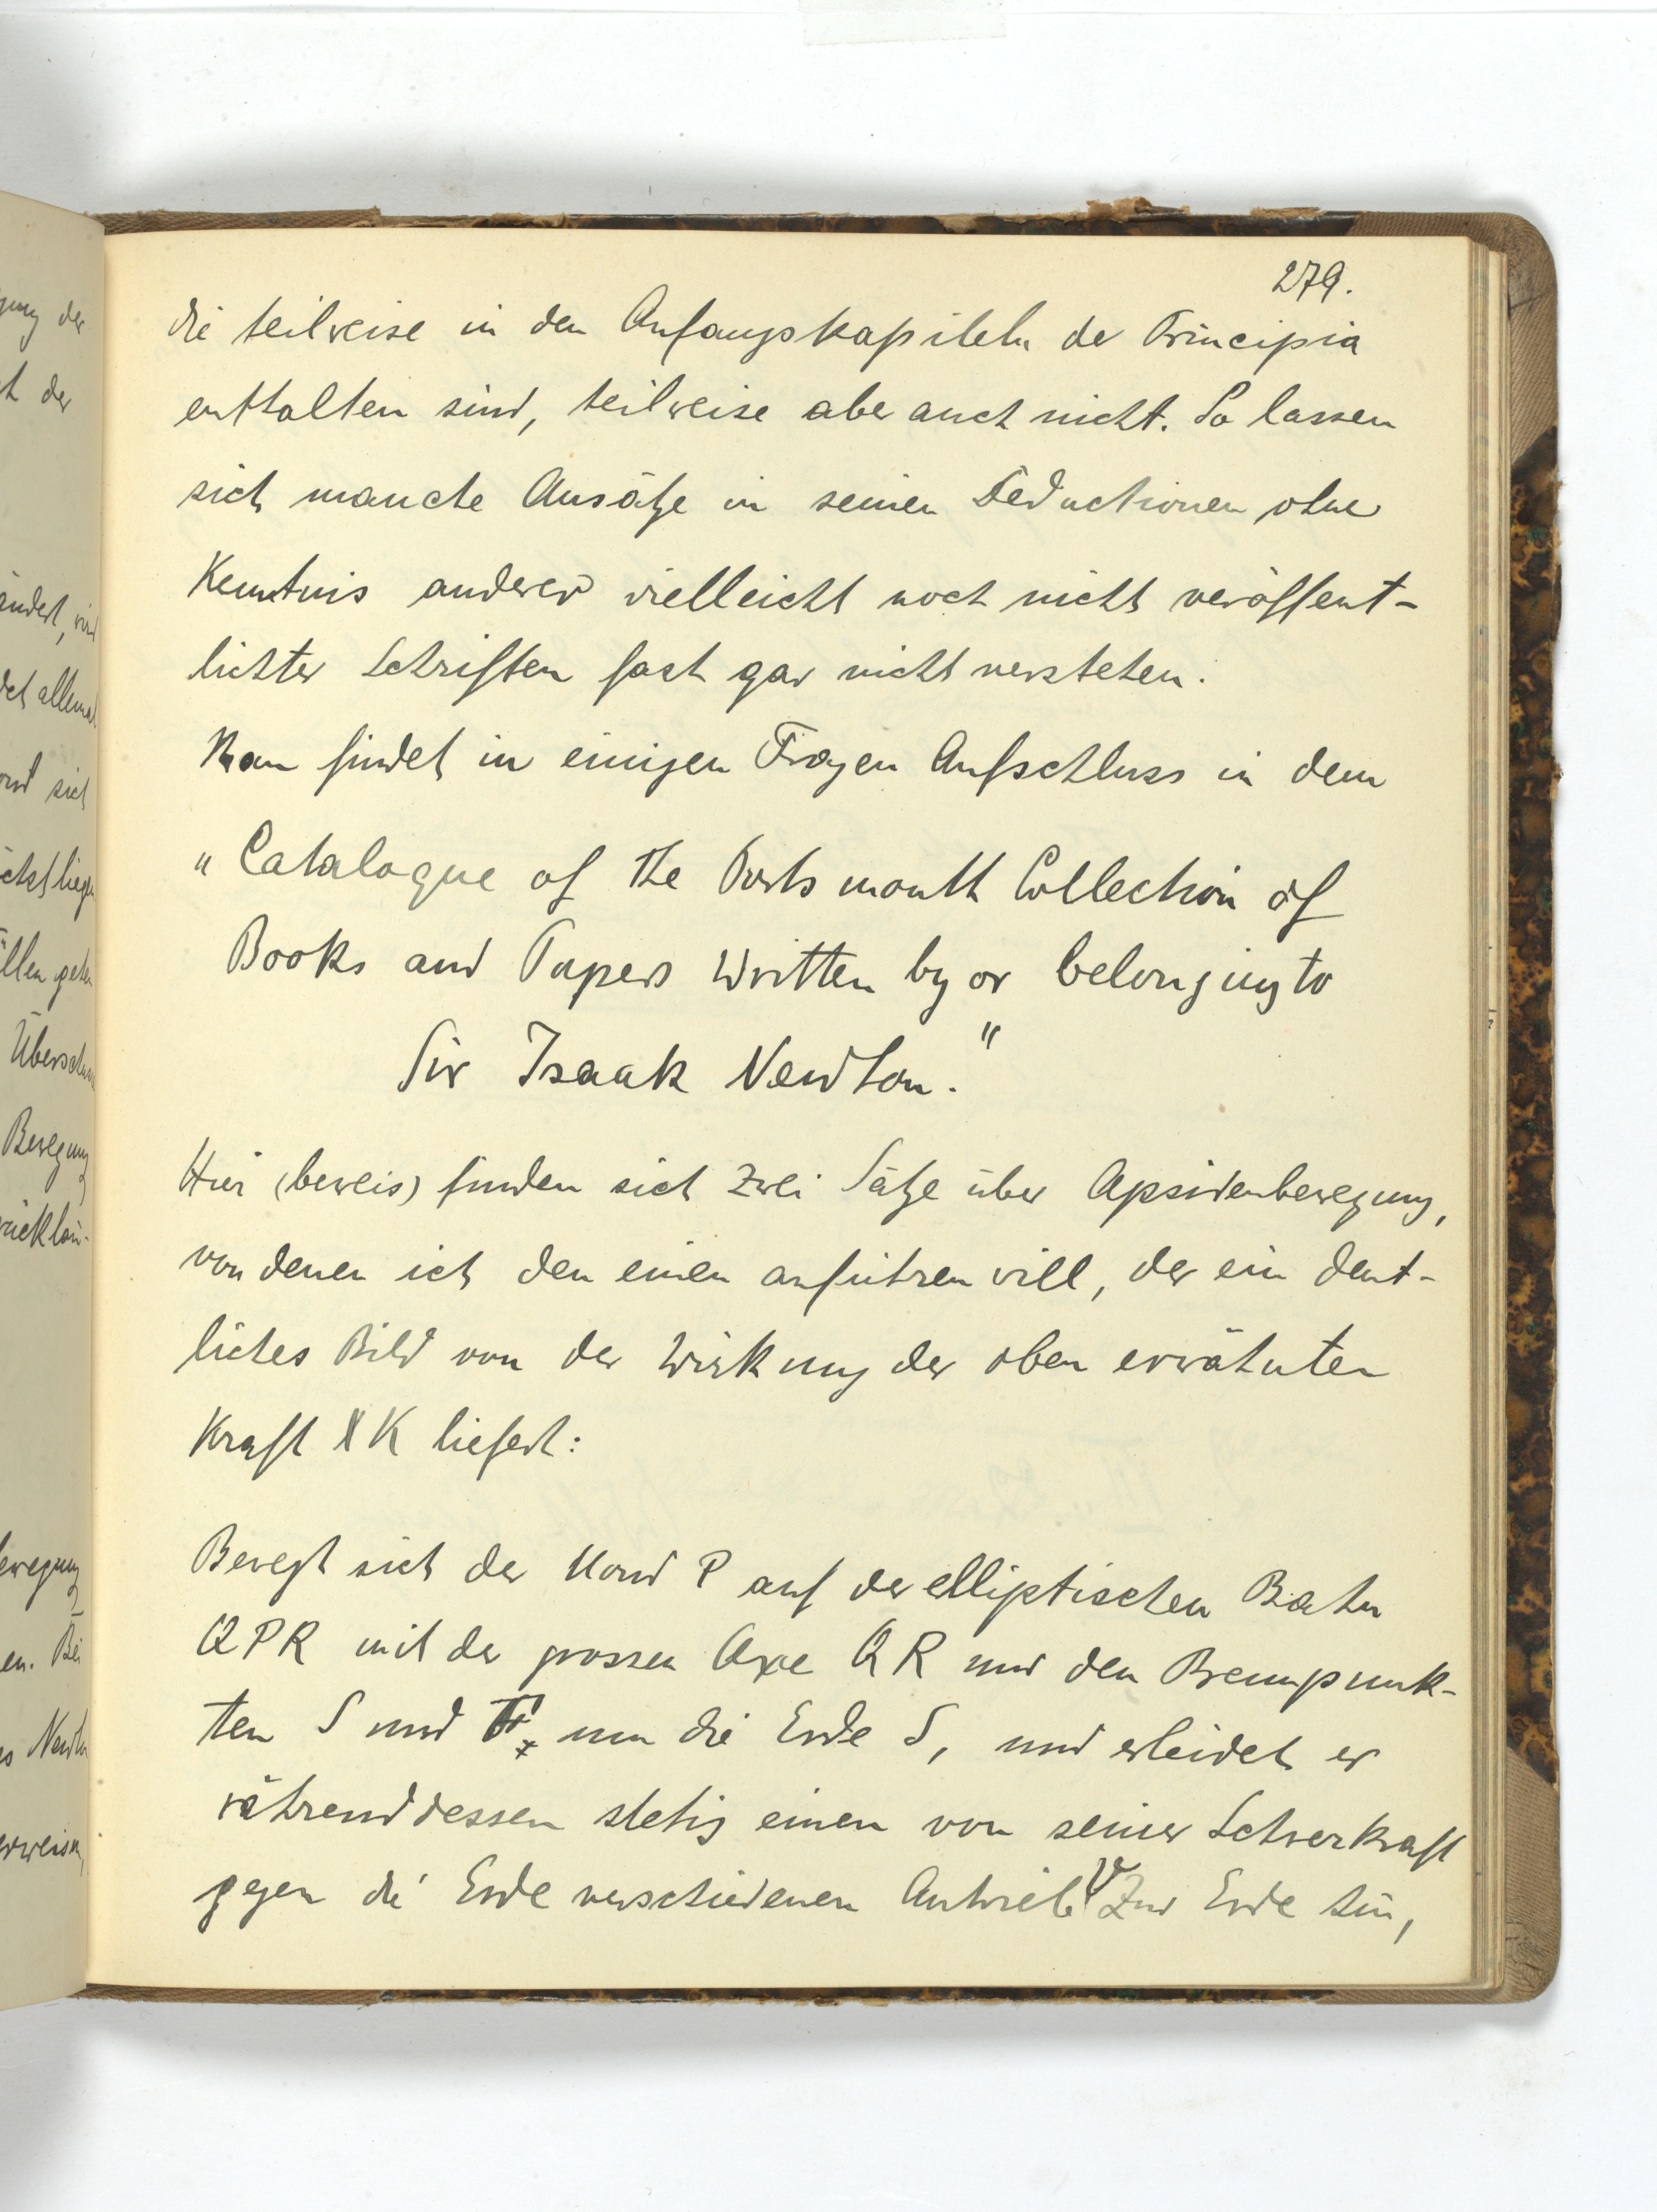 279.
die teilweise in den Anfangskapiteln der Principia
enthalten sind, teilweise aber auch nicht. So lassen
sich manche Ansätze in seinen Deductionen ohne
Kenntnis anderer vielleicht noch nicht veröffent-
lichter Schriften fast gar nicht verstehen.
Man findet in einigen Fragen Aufschluss in dem
"Catalogue of the Portsmouth Collection of
Books and Papers written by or belonging to
Sir Isaak Newton."
Hier (beweis) finden sich zwei Sätze über Apsidenbewegung,
von denen ich den einen anführen will, der ein deut-
liches Bild von der Wirkung der oben erwähnten
Kraft K liefert:
Bewegt sich der Mond P auf der elliptischen Bahn
QPR mit der grossen Axe QR und den Brennpunk-
ten S und F um die Erde S, und erleidet er
währenddessen stetig einen von seiner Schwerkraft
gegen die Erde verschiedenen Antrieb V zur Erde hin,
gung der
t der
ändert, wird
det allemal
und sich
ächst liegen
ällen gehen
Überschuss
Bewegung
rückläu-
Bewegung
en. Bei
es Newton
erweisen,